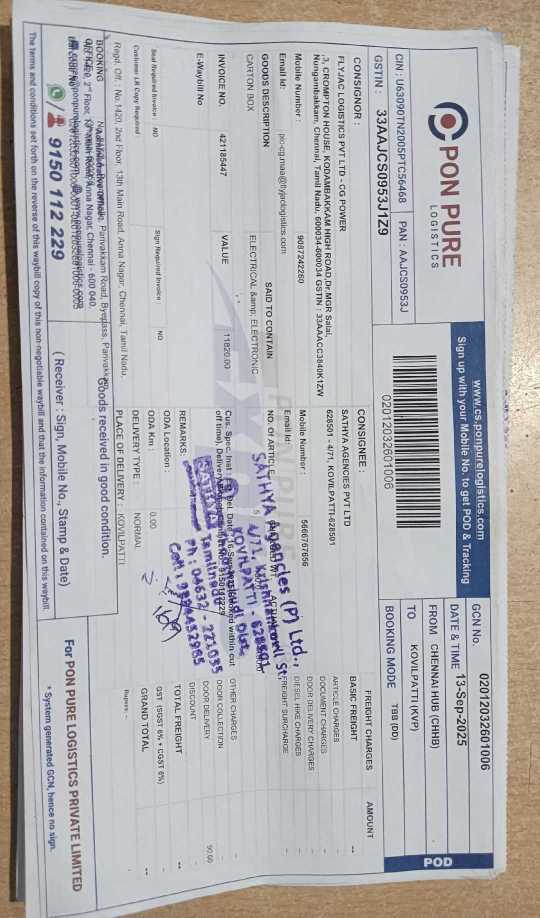 PON PURE
LOGISTICS
www.cs.ponpurelogistics.com
Sign up with your Mobile No. to get POD & Tracking
CIN : U63090TN2005PTC56468
PAN : AAJCS0953J
GSTIN : 33AAJCS0953J1Z9
02012032601006
GCN No. 02012032601006
DATE & TIME 13-Sep-2025
FROM CHENNAI HUB (CHHB)
TO KOVILPATTI (KVP)
BOOKING MODE TBB (DD)
POD
CONSIGNOR :
FLYJAC LOGISTICS PVT LTD - CG POWER
3, CROMPTON HOUSE, KODAMBAKKAM HIGH ROAD,Dr.MGR Salai,
Nungambakkam, Chennai, Tamil Nadu, 600034-600034 GSTIN : 33AAACC3840K1ZW
Mobile Number : 9087242260
Email Id : plc-cg.maa@flyjaclogistics.com
CONSIGNEE :
SATHYA AGENCIES PVT LTD
628501 - 4/71, KOVILPATTI-628501
Mobile Number : 5666767656
Email Id :
GOODS DESCRIPTION
SAID TO CONTAIN
NO. OF ARTICLE
CARTON BOX
ELECTRICAL &amp; ELECTRONIC
5
INVOICE NO. 421185447
VALUE 11820.00
E-Waybill No
Seal Required Invoice : NO
Sign Required Invoice : NO
Customer LR Copy Required
REMARKS:
ODA Location :
ODA Km : 0.00
DELIVERY TYPE : NORMAL
PLACE OF DELIVERY : KOVILPATTI
FREIGHT CHARGES
AMOUNT
BASIC FREIGHT **
ARTICLE CHARGES -
DOCUMENT CHARGES -
DOOR DELIVERY CHARGES -
DIESEL HIKE CHARGES -
FREIGHT SURCHARGE -
OTHER CHARGES -
DOOR COLLECTION -
DOOR DELIVERY 90.00
DISCOUNT -
TOTAL FREIGHT **
GST (SGST 6% + CGST 6%) -
GRAND TOTAL **
Rupees: -
SATHYA Agencies (P) Ltd.,
4/71, Krishnankovil St
KOVILPATTI - 628501
Ph : 04632 - 221035
Regd. Off : No.1420, 2nd Floor, 13th Main Road, Anna Nagar, Chennai, Tamil Nadu,
BOOKING
Goods received in good condition.
9150 112 229
( Receiver : Sign, Mobile No., Stamp & Date)
For PON PURE LOGISTICS PRIVATE LIMITED
* System generated GCN, hence no sign.
The terms and conditions set forth on the reverse of this waybill copy of this non-negotiable waybill and that the information contained on this waybill.